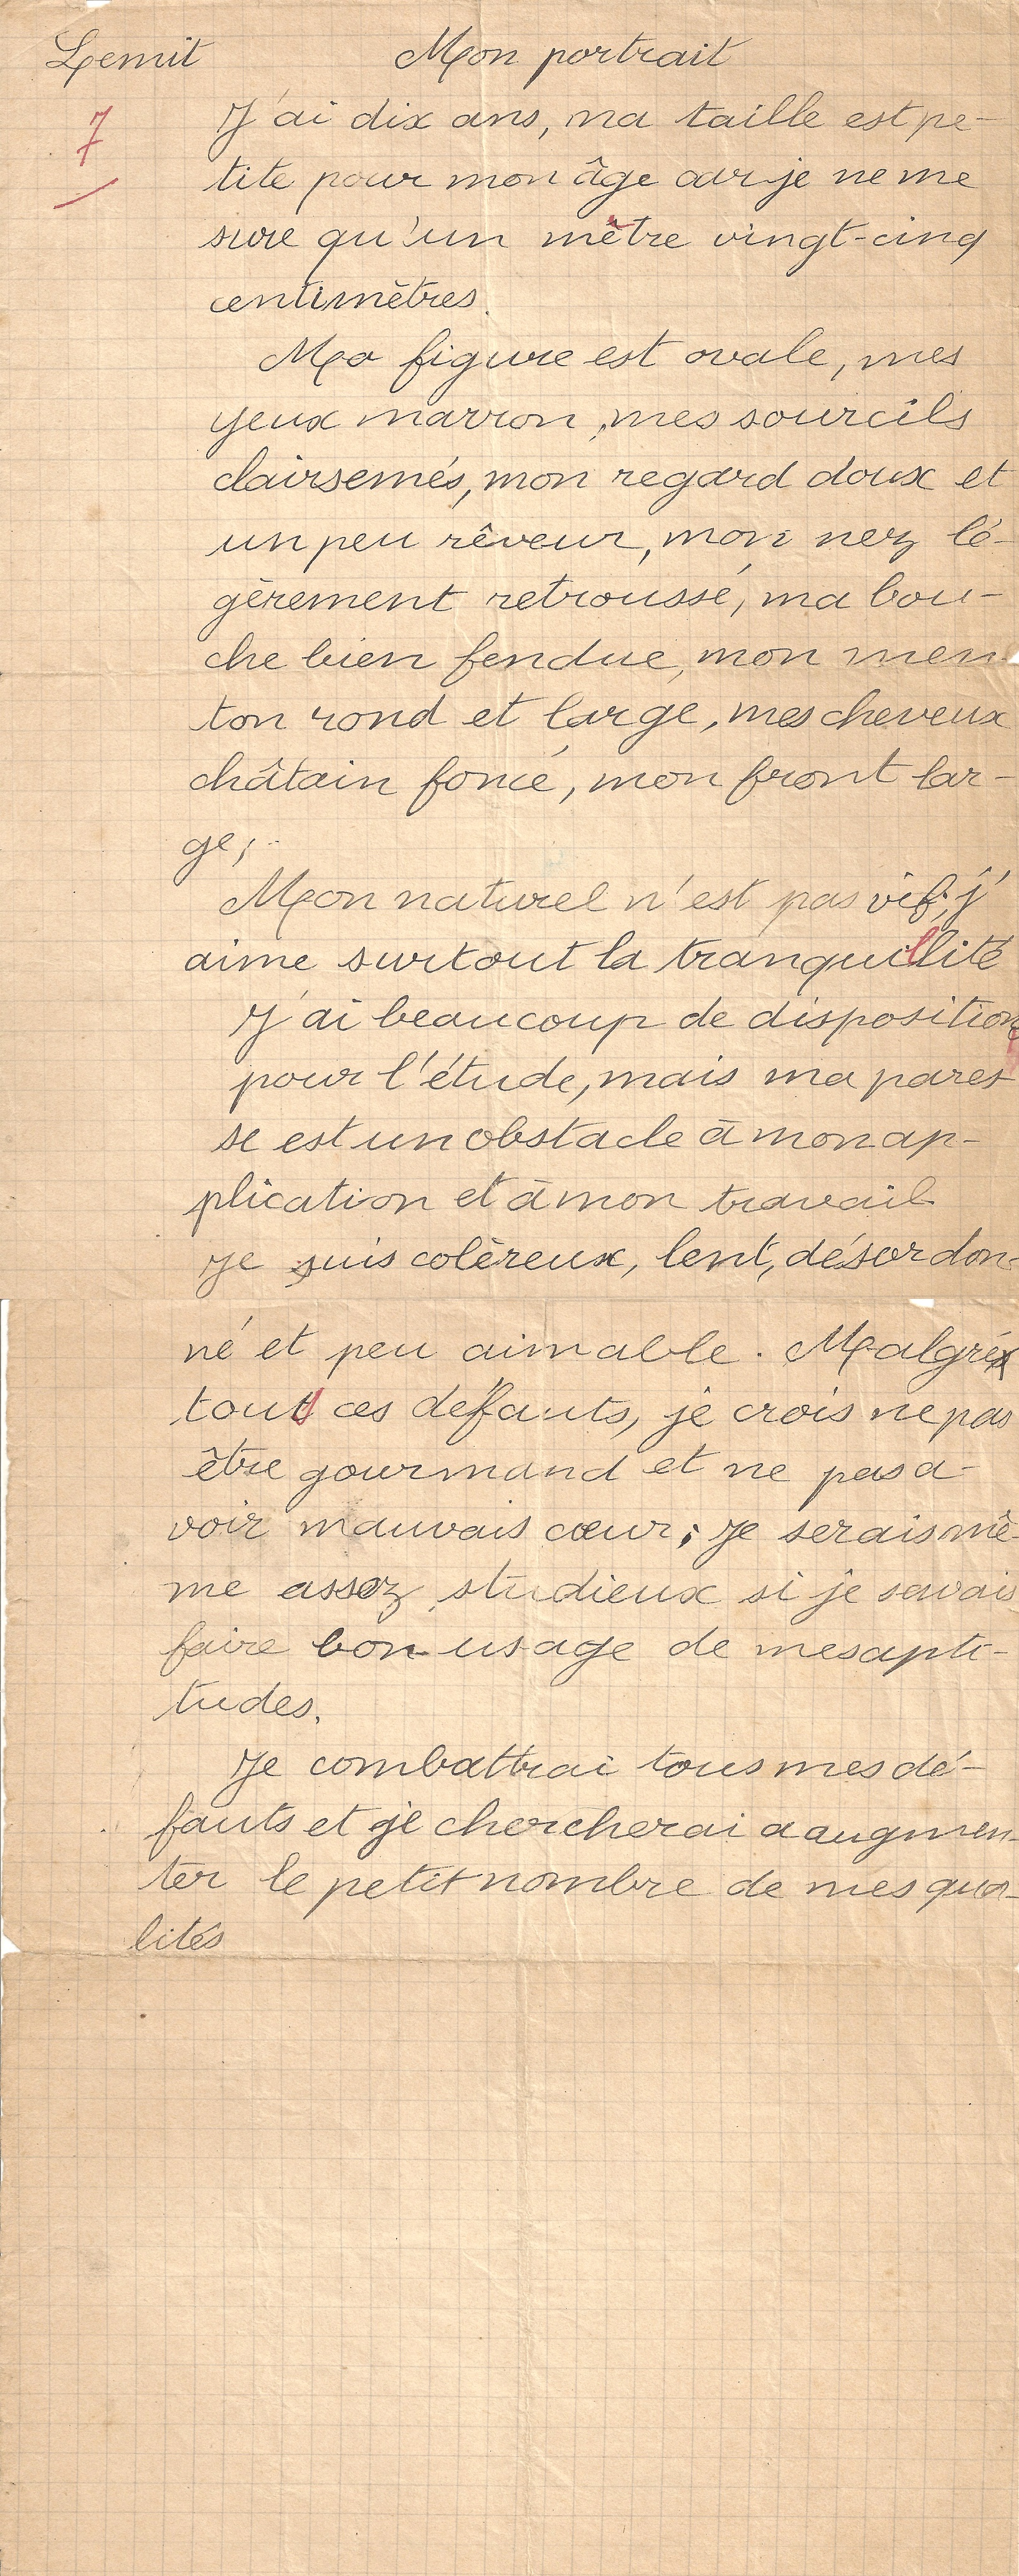 Lemit Mon portrait
7 J'ai dix ans, ma taille est pe-
tite pour mon âge car je ne me
sure qu'un mètre vingt-cinq
centimètres.
Ma figure est ovale, mes
yeux marron, mes sourcils
clairsemés, mon regard doux et
un peu rêveur, mon nez lé-
gèrement retroussé, ma bou-
che bien fendue, mon men-
ton rond et large, mes cheveux
châtain foncé, mon front lar-
ge;
Mon naturel n'est pas vif; j'
aime surtout la tranquillité
J'ai beaucoup de dispositions
pour l'étude, mais ma pares
se est un obstacle à mon ap-
plication et à mon travail
Je suis colèreux, lent, désordon-
né et peu aimable. Malgré
tous ces défauts, je crois ne pas
être gourmand et ne pas a-
voir mauvais cœur; je serais mê-
me assez studieux si je savais
faire bon usage de mes apti-
tudes.
Je combattrai tous mes dé-
fauts et je chercherai a augmen-
ter le petit nombre de mes qua-
lités